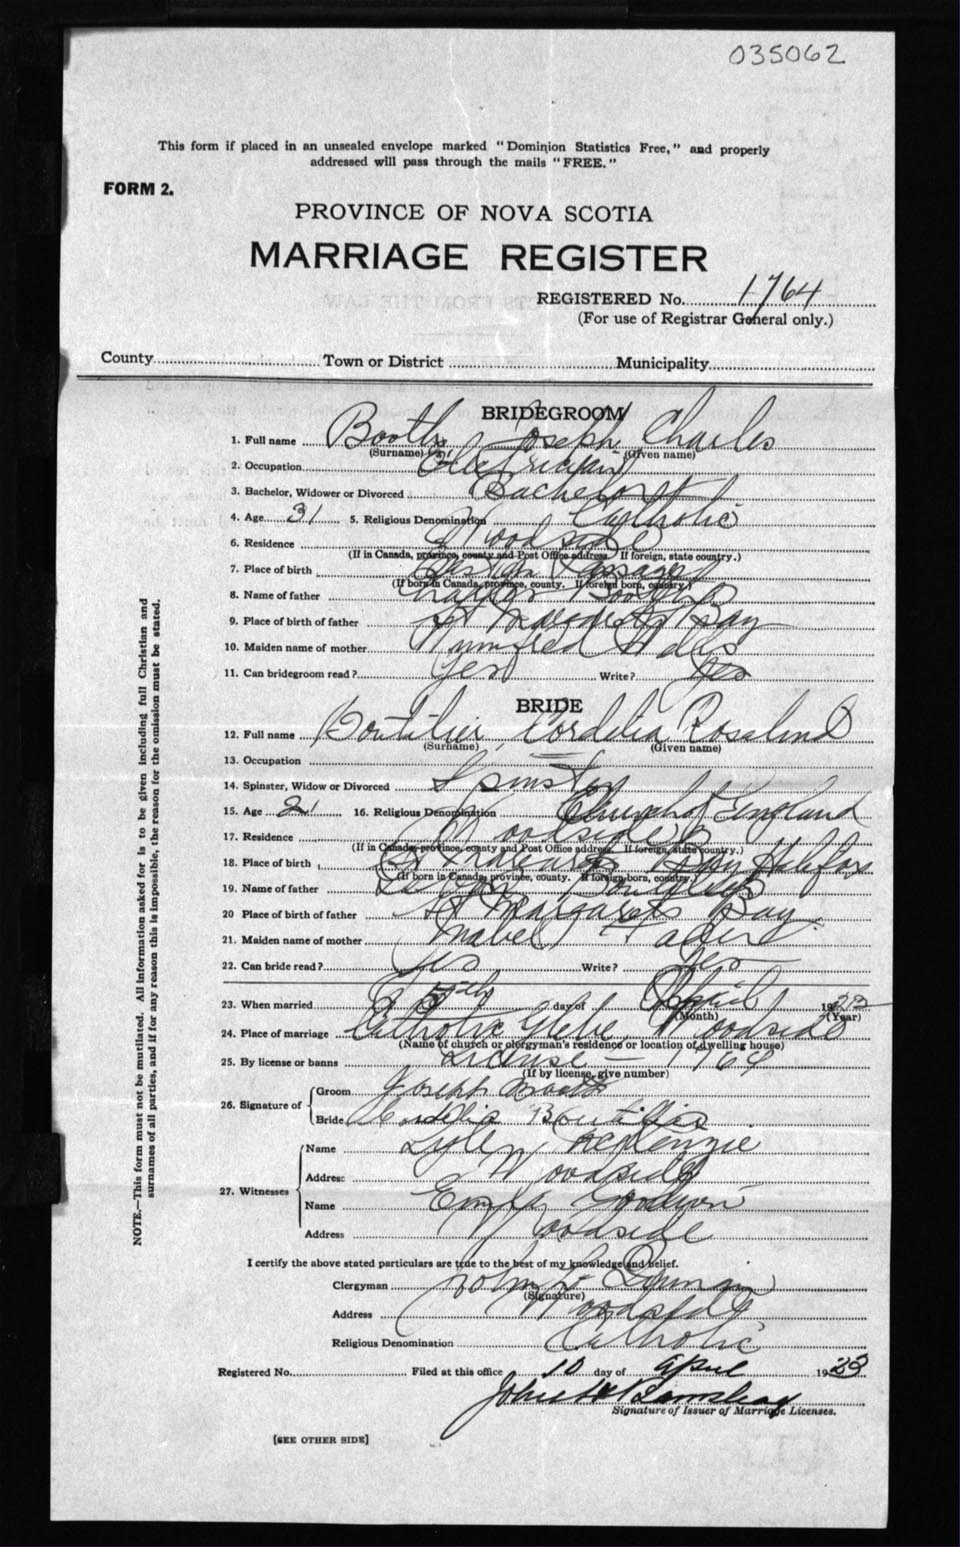 035062
This form if placed in an unsealed envelope marked "Dominion Statistics Free," and properly
addressed will pass through the mails "FREE."
FORM 2.
PROVINCE OF NOVA SCOTIA
MARRIAGE REGISTER
REGISTERED No. 1764
(For use of Registrar General only.)
County Town or District Municipality
BRIDEGROOM
1. Full name Booth Joseph Charles
(Surname) (Given name)
2. Occupation Electrician
3. Bachelor, Widower or Divorced Bachelor
4. Age 31 5. Religious Denomination Catholic
6. Residence Woodside
(If in Canada, province, county and Post Office address. If foreign, state country.)
7. Place of birth Eastern Passage
(If born in Canada, province, county. If foreign born, country.)
8. Name of father Charles Booth
9. Place of birth of father St Margarets Bay
10. Maiden name of mother Winnifred
11. Can bridegroom read? Yes Write? Yes
BRIDE
12. Full name Boutilier Cordelia Rosalind
(Surname) (Given name)
13. Occupation
14. Spinster, Widow or Divorced Spinster
15. Age 21 16. Religious Denomination Church of England
17. Residence Woodside
(If in Canada, province, county and Post Office address. If foreign, state country.)
18. Place of birth St Margarets Bay Halifax
(If born in Canada, province, county. If foreign born, country.)
19. Name of father Boutilier
20 Place of birth of father St Margarets Bay
21. Maiden name of mother Mabel Fader
22. Can bride read? Yes Write? Yes
23. When married 5th day of April 1923
(Month) (Year)
24. Place of marriage Catholic Glebe, Woodside
(Name of church or clergyman's residence or location of dwelling house)
25. By license or banns License - 1764
(If by license, give number)
26. Signature of Groom Joseph Booth
Bride Cordelia Boutilier
27. Witnesses Name Lyle McKenzie
Address Woodside
Name Goodwin
Address Woodside
I certify the above stated particulars are true to the best of my knowledge and belief.
Clergyman John
(Signature)
Address Woodside
Religious Denomination Catholic
Registered No. Filed at this office 10 day of April 1923
John
Signature of Issuer of Marriage Licenses.
[SEE OTHER SIDE]
NOTE.—This form must not be mutilated. All information asked for is to be given including full Christian and
surnames of all parties, and if for any reason this is impossible, the reason for the omission must be stated.